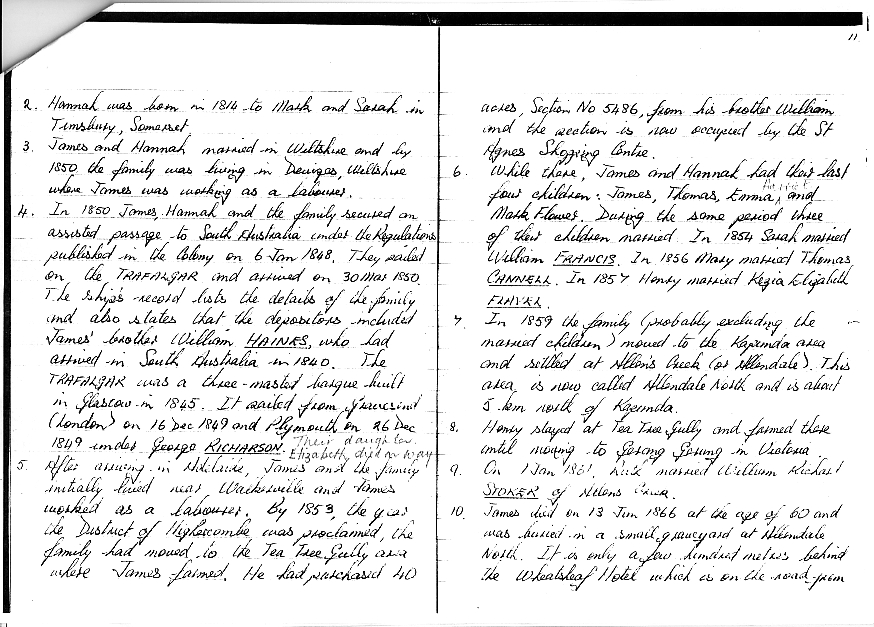 11
2. Hannah was born in 1814 to Mark and Sarah in
Timsbury, Somerset.
3. James and Hannah married in Wiltshire and by
1850 the family was living in Devizes, Wiltshire
where James was working as a labourer.
4. In 1850 James, Hannah and the family secured an
assisted passage to South Australia under the Regulations
published in the Colony on 6 Jan 1848. They sailed
on the TRAFALGAR and arrived on 30 Mar 1850.
The ship's record lists the details of the family
and also states that the depositors included
James' brother William HAINES, who had
arrived in South Australia in 1840. The
TRAFALGAR was a three-masted barque built
in Glascow in 1845. It sailed from Gravesend
(London) on 16 Dec 1849 and Plymouth on 26 Dec
1849 under George RICHARSON. Their daughter
Elizabeth died on way
5. After arriving in Adelaide, James and the family
initially lived near Walkerville and James
worked as a labourer. By 1853, the year
the District of Highercombe was proclaimed, the
family had moved to the Tea Tree Gully area
where James farmed. He had purchased 40
acres, Section No 5486, from his brother William
and the section is now occupied by the St
Agnes Shopping Centre.
6. While there, James and Hannah had their last
four children: James, Thomas, Emma, and
Mark Flower. During the same period three
of their children married. In 1854 Sarah married
William FRANCIS. In 1856 Mary married Thomas
CANNELL. In 1857 Henry married Kezia Elizabeth
FLAVEL.
7. In 1859 the family (probably excluding the
married children) moved to the Kapunda area
and settled at Allen's Creek (or Allendale). This
area is now called Allendale North and is about
5 km north of Kapunda.
8. Henry stayed at Tea Tree Gully and farmed there
until moving to Gerang Gerung in Victoria.
9. On 1 Jan 1861, married William Richard
STOKER of Allens Creek.
10. James died on 13 Jun 1866 at the age of 60 and
was buried in a small graveyard at Allendale
North. It is only a few hundred metres behind
the Wheatsheaf Hotel which is on the road from